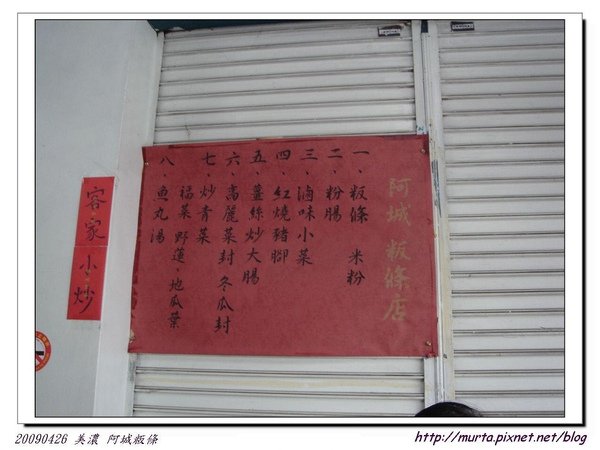 阿城 粄條店
一、粄條 米粉
二、粉腸
三、滷味小菜
四、紅燒豬腳
五、薑絲炒大腸
六、高麗菜封 冬瓜封
七、炒青菜
福菜 野蓮、地瓜葉
八、魚丸湯
客家小炒
20090426 美濃 阿城粄條
http://murta.pixnet.net/blog